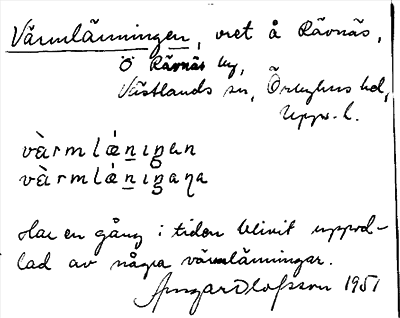 Värmlänningen, vret å Rävnäs,
Ö Rävnäs by,
Västlands sn, Örbyhus hd,
Upps. l.
vàrmlǽnigan
vàrmlǽnigaɳa
Har en gång i tiden blivit uppod-
lad av några värmlänningar.
Ansgar Olofsson 1951